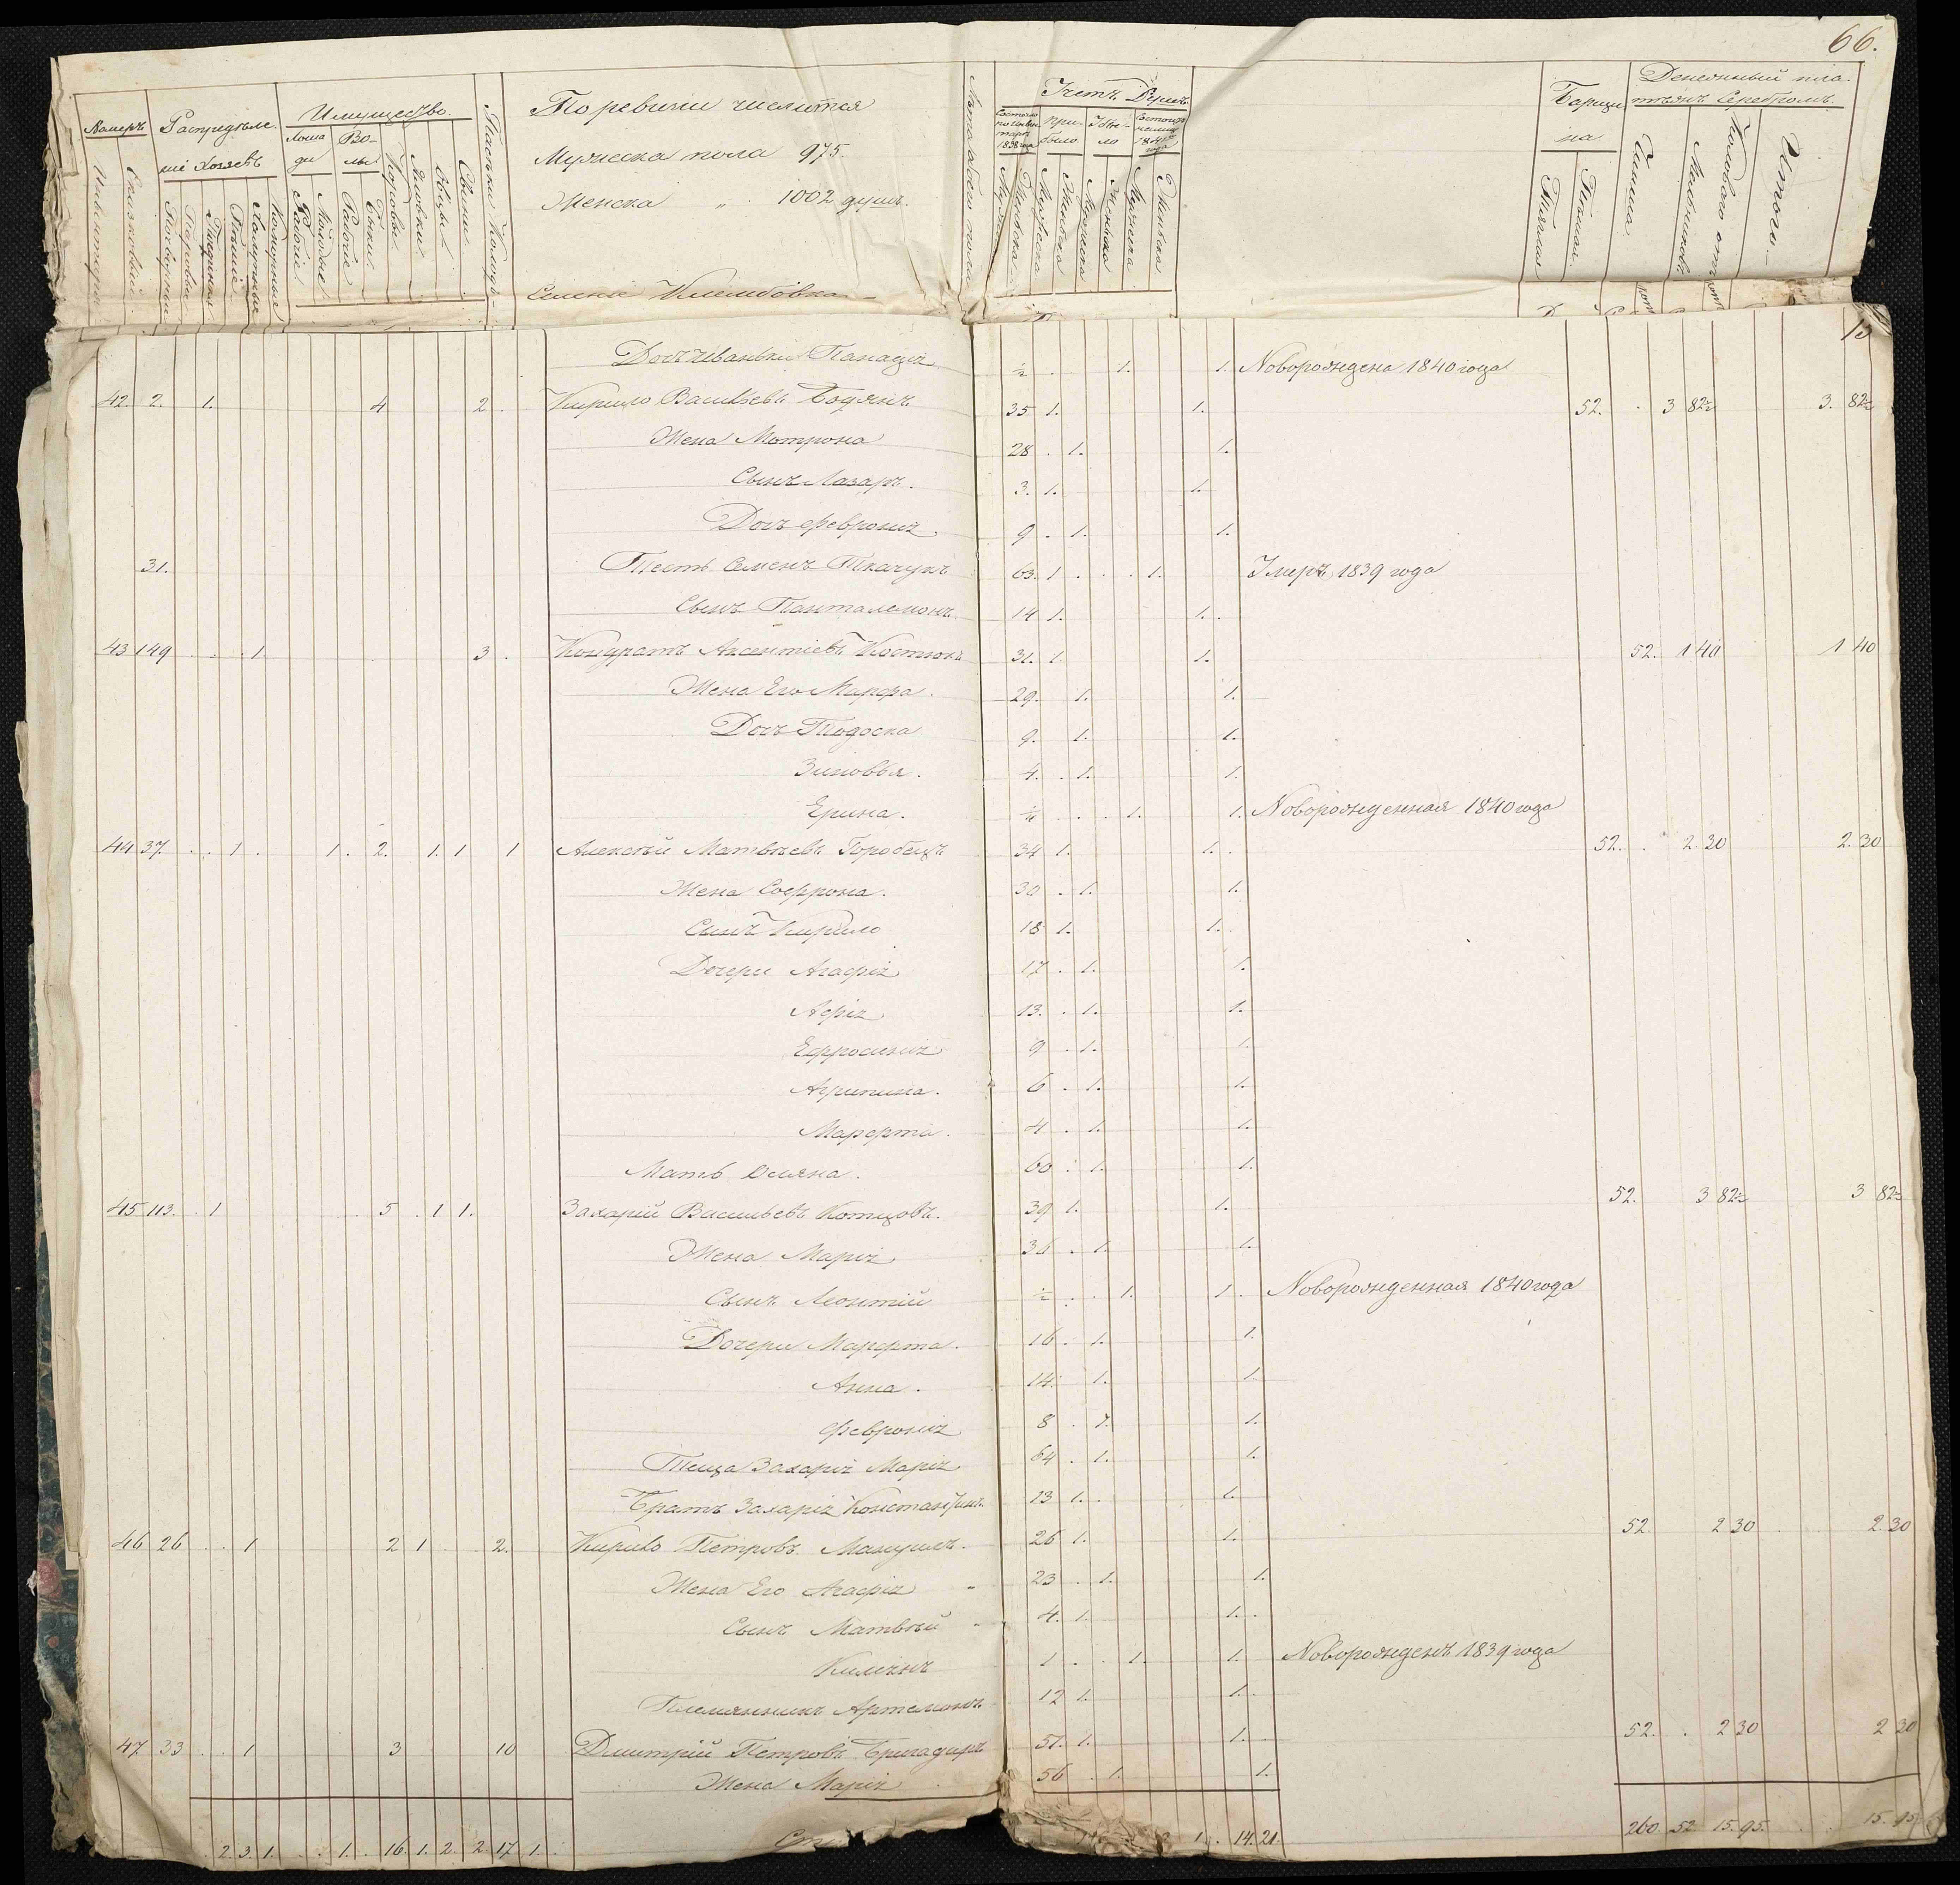 66.
Номеръ
Распредѣле-
ніе Хозяевъ
Имущество.
Лоша
ди
Во-
лы
Инвентарн.
Списковый
Рабочіе
Молодые
Рабочіе
Быки.
Коровы.
Яловки.
Овцы.
Свиньи
Пасѣки Колодъ
По ревизіи числится
Мужеска пола 975.
Женска " 1002 душъ.
Селеніе
Учетъ Душъ
При-
было
Убы-
ло
1838 года
1841
года
Мужеска
Женска
Мужеска
Женска
Мужеска
Женска
Барщи
на
Тяглая
Пѣшая
Денежный пла-
тежъ Серебромъ.
Чинша
Итого.
13
Новорождена 1840 года
½ . . 1. 1.
42. 2. 1. 4 2 Кирило Васильевъ Бодянъ 35 1. 1. 52. 3 82½ 3. 82½
Жена Мотрона 28 . 1. 1.
Сынъ Лазаръ. 3. 1. 1.
Дочь Февронія. 9 . 1. 1.
31. Тесть Семенъ Ткачукъ 63. 1 . . . 1. Умеръ 1839 года
Сынъ Панталемонъ 14 1. 1.
43 149 . . . 1. 3 . Кондратъ Аксентіевъ Костюкъ 31. 1. 1. 52. 1 40 1 40
Жена Его Марфа. 29. 1. 1.
Дочь Тодоска 9. 1. 1.
Зиновья. 4. . 1. 1.
Ерина. ¼ . . . 1. 1. Новорожденная 1840 года
44 37. . . 1 . 1. 2. 1. 1 1 Алексѣй Матвѣевъ Горобецъ 34 1. 1. 52. . 2. 30 2. 30
Жена Софрона. 30 . 1. 1.
Сынъ Кирило 18 1. 1.
Дочери Агафія 17 . 1. 1.
Афія 13. . 1. 1.
Ефросинія 9 . 1. 1.
Агрипина. 6 . 1. 1.
Марфта. 4 . 1. 1.
Мать Уляна. 60 . 1. 1.
45 113. . 1 5 . 1 1. Захарій Васильевъ Котцовъ. 39 1. 1. 52. 3 82½ 3 82½
Жена Марія 36 . 1. 1.
Сынъ Леонтій ½ . . 1. 1. Новорожденная 1840 года
Дочери Марфта. 16 . 1. 1.
Анна. 14. 1. 1.
Февронія 8 . 1. 1.
Теща Захарія Марія 64 . 1. 1.
Братъ Захарія Константинъ. 13 1. 1.
46 26 . . 1 2 1 . . 2. Кирило Петровъ 26 1. 1. 52. 2 30 2. 30
Жена Его Агафія " 23 . 1. 1.
Сынъ Матвѣй " 4. 1. 1.
1 . . 1. 1. Новорожденъ 1839 года
Племянникъ Артемонъ. 12 1. 1.
47 33 . . 1 3 10 Дмитрій Петровъ Бригадиръ 57. 1. 1. 52. . 2 30 2 30
Жена Марія 56 . 1. 1.
2. 3. 1. . . 1. . 16. 1. 2. 2. 17 1. 14. 21. 260. 52 15. 95. 15. 95